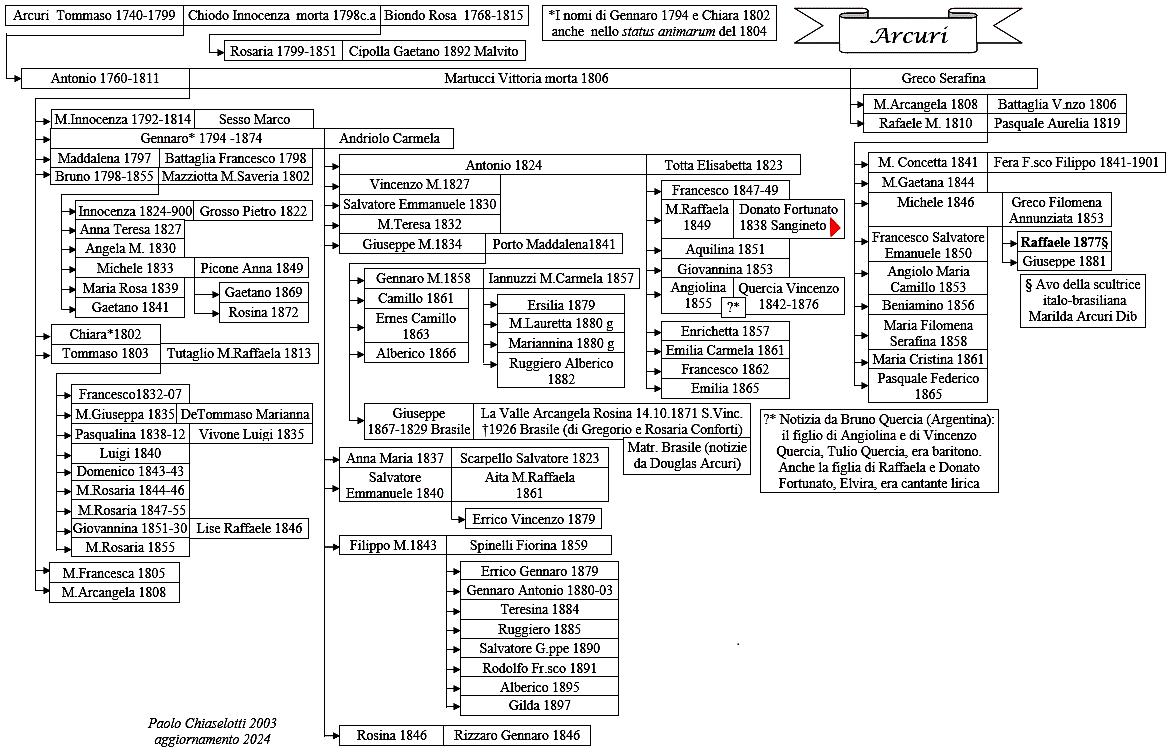 Arcuri Tommaso 1740-1799 Chiodo Innocenza morta 1798c.a Biondo Rosa 1768-1815
*I nomi di Gennaro 1794 e Chiara 1802
anche nello status animarum del 1804
Arcuri
Rosaria 1799-1851 Cipolla Gaetano 1892 Malvito
Antonio 1760-1811 Martucci Vittoria morta 1806 Greco Serafina
M.Innocenza 1792-1814 Sesso Marco
Gennaro* 1794 -1874 Andriolo Carmela
Maddalena 1797 Battaglia Francesco 1798
Bruno 1798-1855 Mazziotta M.Saveria 1802
Innocenza 1824-900 Grosso Pietro 1822
Anna Teresa 1827
Angela M. 1830
Michele 1833 Picone Anna 1849
Maria Rosa 1839
Gaetano 1841
Gaetano 1869
Rosina 1872
Chiara*1802
Tommaso 1803 Tutaglio M.Raffaela 1813
Francesco1832-07
M.Giuseppa 1835 DeTommaso Marianna
Pasqualina 1838-12 Vivone Luigi 1835
Luigi 1840
Domenico 1843-43
M.Rosaria 1844-46
M.Rosaria 1847-55
Giovannina 1851-30 Lise Raffaele 1846
M.Rosaria 1855
M.Francesca 1805
M.Arcangela 1808
Antonio 1824 Totta Elisabetta 1823
Vincenzo M.1827
Salvatore Emmanuele 1830
M.Teresa 1832
Giuseppe M.1834 Porto Maddalena1841
Gennaro M.1858 Iannuzzi M.Carmela 1857
Camillo 1861
Ernes Camillo
1863
Alberico 1866
Ersilia 1879
M.Lauretta 1880 g
Mariannina 1880 g
Ruggiero Alberico
1882
Giuseppe
1867-1829 Brasile
La Valle Arcangela Rosina 14.10.1871 S.Vinc.
†1926 Brasile (di Gregorio e Rosaria Conforti)
Matr. Brasile (notizie
da Douglas Arcuri)
Anna Maria 1837 Scarpello Salvatore 1823
Salvatore
Emmanuele 1840
Aita M.Raffaela
1861
Errico Vincenzo 1879
Filippo M.1843 Spinelli Fiorina 1859
Errico Gennaro 1879
Gennaro Antonio 1880-03
Teresina 1884
Ruggiero 1885
Salvatore G.ppe 1890
Rodolfo Fr.sco 1891
Alberico 1895
Gilda 1897
Rosina 1846 Rizzaro Gennaro 1846
Francesco 1847-49
M.Raffaela
1849
Donato Fortunato
1838 Sangineto
Aquilina 1851
Giovannina 1853
Angiolina
1855
Quercia Vincenzo
1842-1876
?*
Enrichetta 1857
Emilia Carmela 1861
Francesco 1862
Emilia 1865
M.Arcangela 1808 Battaglia V.nzo 1806
Rafaele M. 1810 Pasquale Aurelia 1819
M. Concetta 1841 Fera F.sco Filippo 1841-1901
M.Gaetana 1844
Michele 1846
Greco Filomena
Annunziata 1853
Francesco Salvatore
Emanuele 1850
Angiolo Maria
Camillo 1853
Beniamino 1856
Maria Filomena
Serafina 1858
Maria Cristina 1861
Pasquale Federico
1865
Raffaele 1877§
Giuseppe 1881
§ Avo della scultrice
italo-brasiliana
Marilda Arcuri Dib
?* Notizia da Bruno Quercia (Argentina):
il figlio di Angiolina e di Vincenzo
Quercia, Tulio Quercia, era baritono.
Anche la figlia di Raffaela e Donato
Fortunato, Elvira, era cantante lirica
Paolo Chiaselotti 2003
aggiornamento 2024